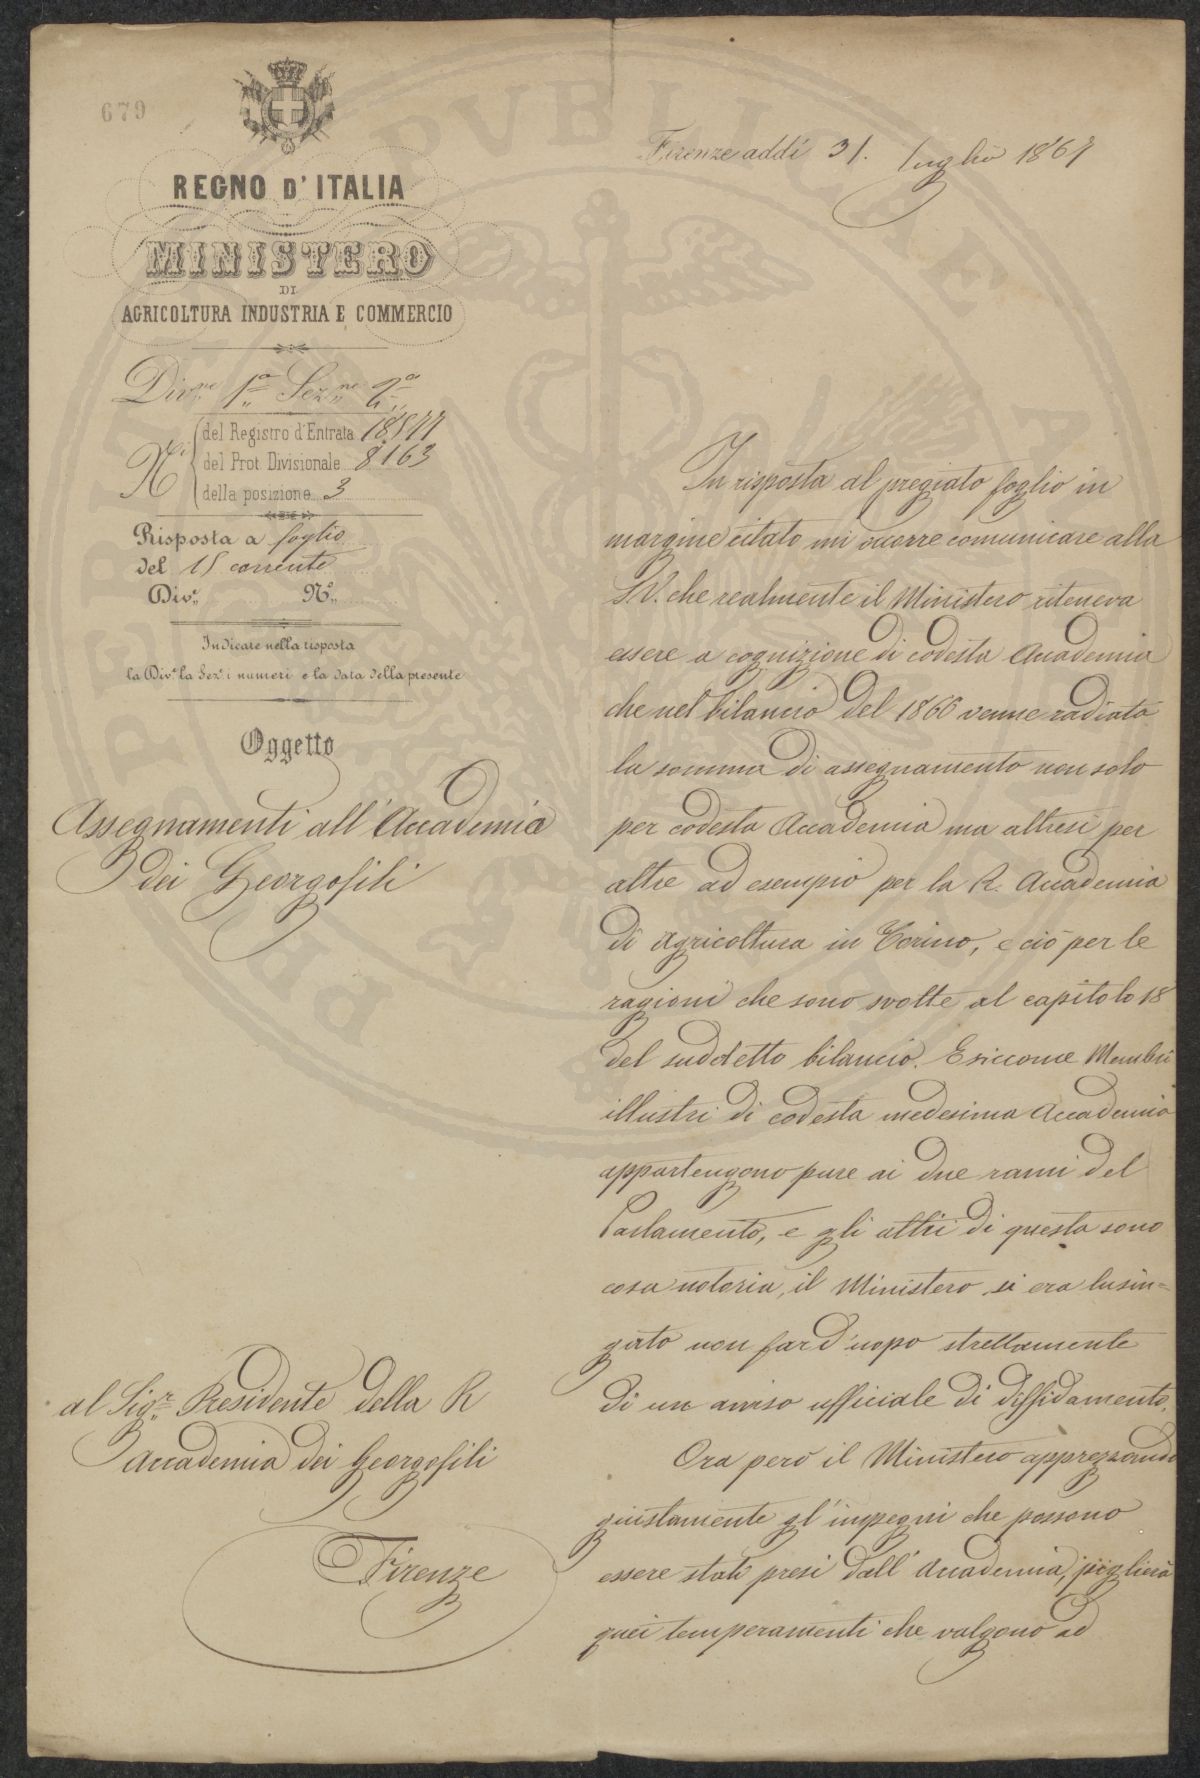 679
REGNO D'ITALIA
MINISTERO
DI
AGRICOLTURA INDUSTRIA E COMMERCIO
Div.ne 1a Sez.ne 2a
N.i
del Registro d'Entrata 18577
del Prot. Divisionale 8163
della posizione 3
Risposta a foglio
del 15 corrente
Div.e N.o
Indicare nella risposta
la Div.e la Sez.e i numeri e la data della presente
Oggetto
Assegnamenti all'Accademia
dei Georgofili
al Sig.r Presidente della R
Accademia dei Georgofili
Firenze
Firenze addì 31. luglio 1867
In risposta al pregiato foglio in
margine citato mi occorre comunicare alla
S.V. che realmente il Ministero riteneva
essere a cognizione di codesta Accademia
che nel bilancio del 1866 venne radiata
la somma di assegnamento non solo
per codesta Accademia ma altresì per
altre ad esempio per la R. Accademia
di Agricoltura in Torino, e ciò per le
ragioni che sono svolte al capitolo 18
del suddetto bilancio. E siccome Membri
illustri di codesta medesima Accademia
appartengono pure ai due rami del
Parlamento, e gli altri di questa sono
cosa notoria, il Ministero si era lusin=
gato non far d'uopo strettamente
di un avviso ufficiale di diffidamento.
Ora però il Ministero apprezzando
giustamente gl'impegni che possono
essere stati presi dall'Accademia, piglierà
quei temperamenti che valgono ad